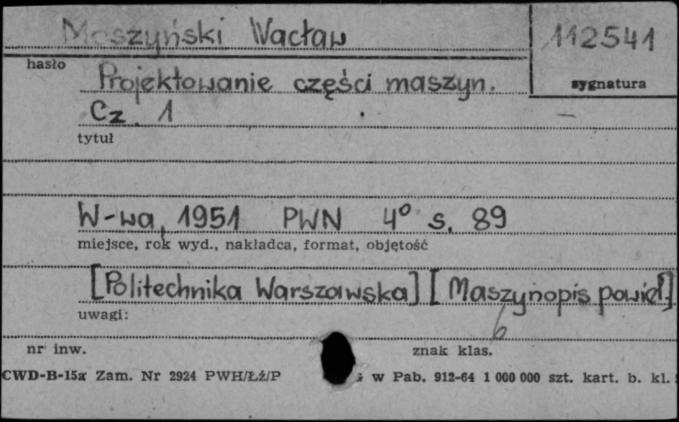 Moszyński Wacław
112541
hasło
sygnatura
Projektowanie części maszyn.
Cz. 1
tytuł
W-wa, 1951 PWN 4° s. 89
miejsce, rok wyd., nakładca, format, objętość
[Politechnika Warszawska] [Maszynopis powiel.]
uwagi:
6
nr inw.
znak klas.
CWD-B-15a Zam. Nr 2924 PWH/Łź/P w Pab. 912-64 1 000 000 szt. kart. b. kl.